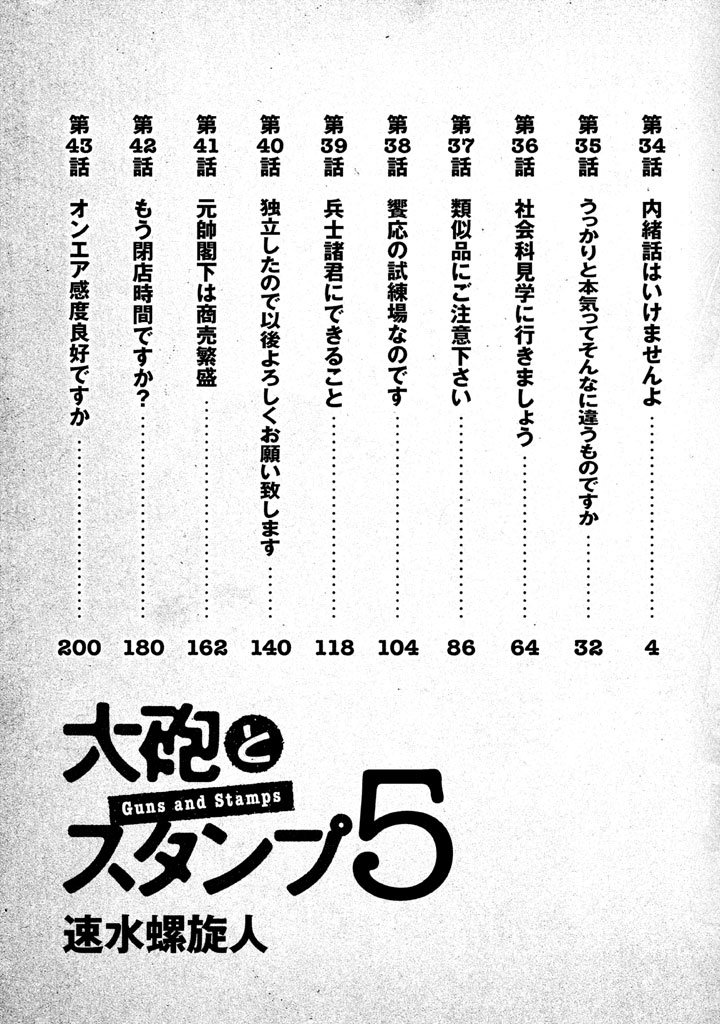 第34話 内緒話はいけませんよ 4
第35話 うっかりと本気ってそんなに違うものですか 32
第36話 社会科見学に行きましょう 64
第37話 類似品にご注意下さい 86
第38話 饗応の試練場なのです 104
第39話 兵士諸君にできること 118
第40話 独立したので以後よろしくお願い致します 140
第41話 元帥閣下は商売繁盛 162
第42話 もう閉店時間ですか? 180
第43話 オンエア感度良好ですか 200
大砲と
Guns and Stamps
スタンプ5
速水螺旋人